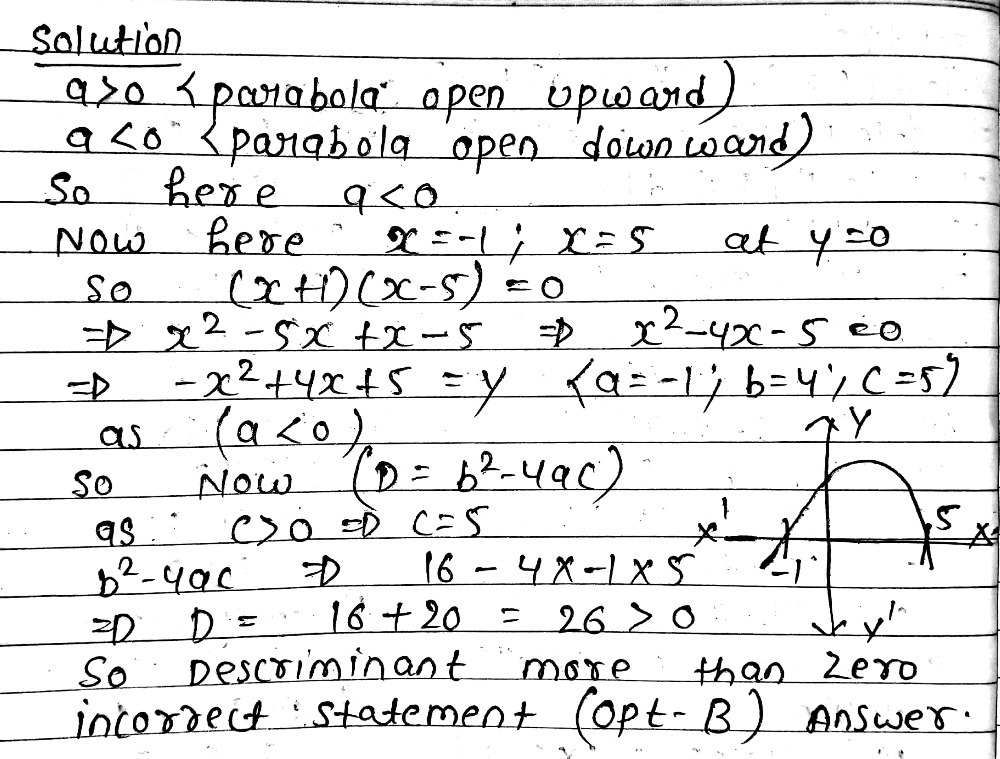 Solution
a>0 {parabola open upward)
a<0 {parabola open downward)
So here a<0
Now here x=-1; x=5 at y=0
so (x+1)(x-5)=0
=> x²-5x+x-5 => x²-4x-5=0
=> -x²+4x+5=y {a=-1; b=4; c=5}
as (a<0)
so Now (D=b²-4ac)
as c>0 => c=5
b²-4ac => 16-4x-1x5
=> D= 16+20 = 26>0
So Descriminant more than zero
incorrect statement (Opt-B) Answer.
Y
X' 5 X
-1
y'